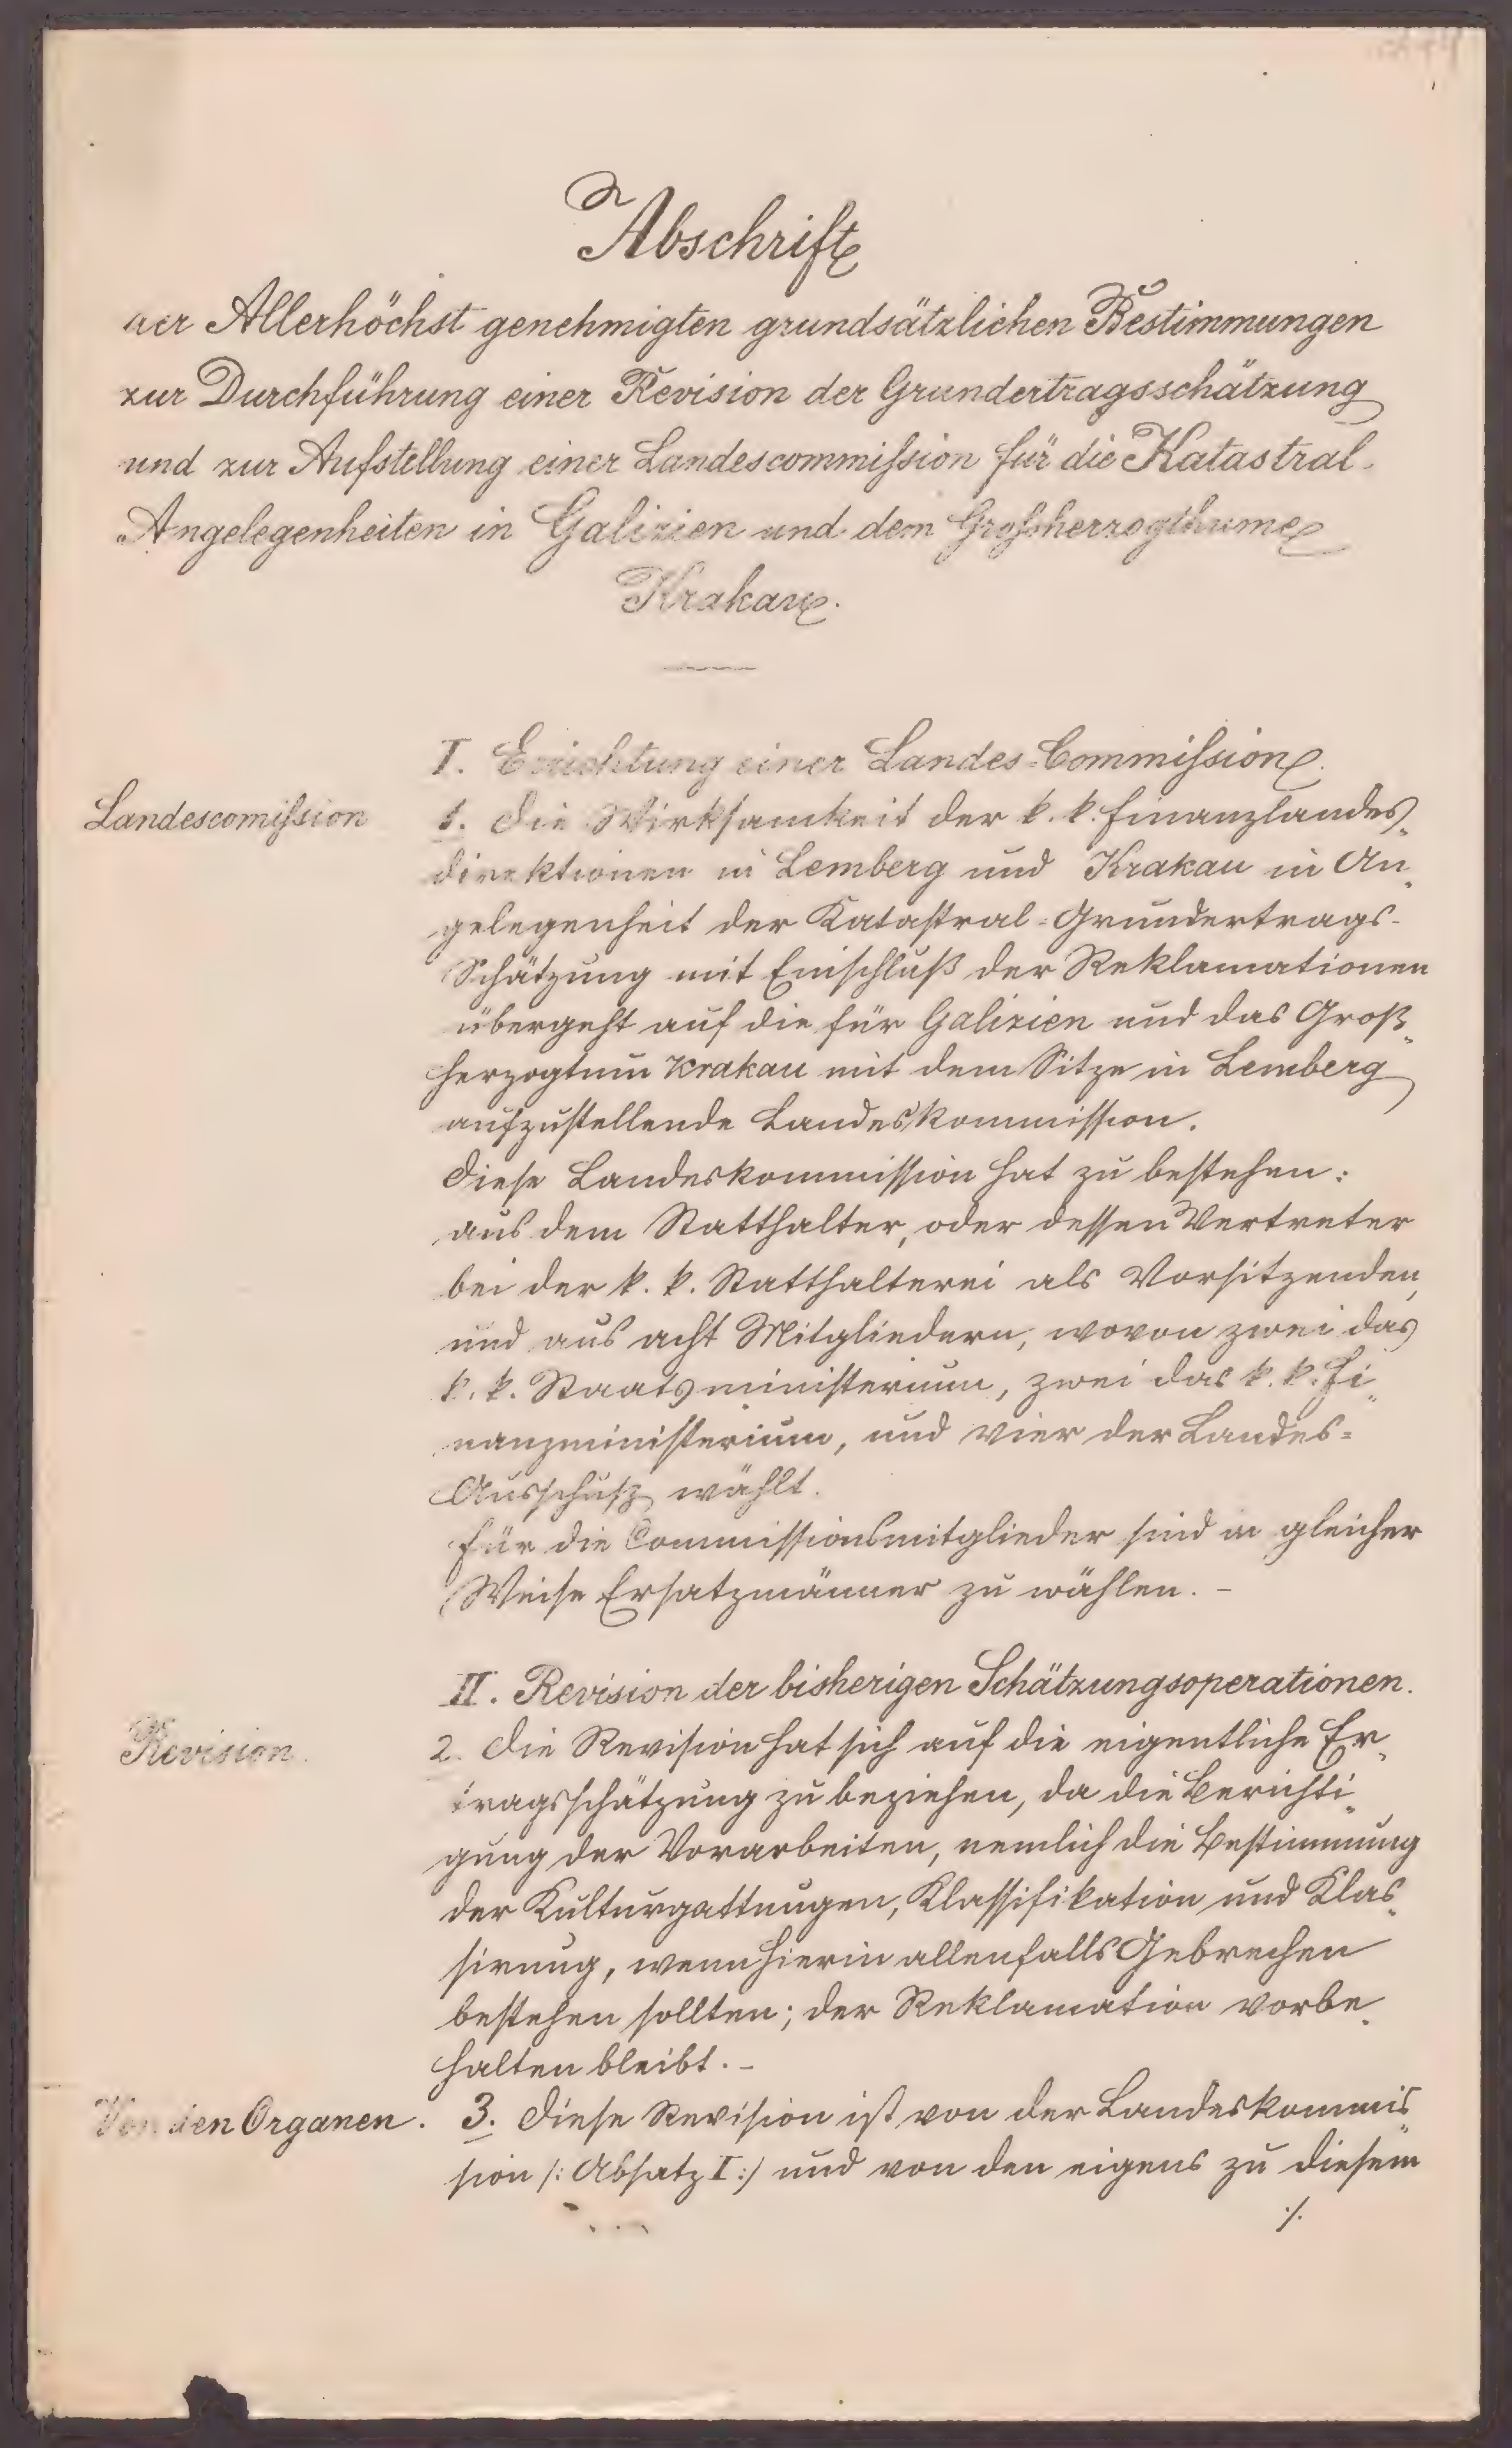 Abschrift
der Allerhöchst genehmigten grundsätzlichen Bestimmungen
zur Durchführung einer Revision der Grundertragsschätzung
und zur Aufstellung einer Landescommission für die Katastral-
Angelegenheiten in Galizien und dem Großherzogthume
Krakau.
I. Errichtung einer Landes-Commission.
Landescomission
1. Die Wirksamkeit der k. k. Finanzlandes-
direktionen in Lemberg und Krakau in An-
gelegenheit der Katastral-Grundertrags-
Schätzung mit Einschluß der Reklamationen
übergeht auf die für Galizien und das Groß-
herzogtum Krakau mit dem Sitze in Lemberg
aufzustellende Landeskommission.
Diese Landeskommission hat zu bestehen:
aus dem Statthalter, oder dessen Vertreter
bei der k. k. Statthalterei als Vorsitzenden,
und aus acht Mitgliedern, wovon zwei das
k. k. Staatsministerium, zwei das k. k. Fi-
nanzministerium, und vier der Landes-
Ausschuß wählt.
Für die Commissionsmitglieder sind in gleicher
Weise Ersatzmänner zu wählen. -
II. Revision der bisherigen Schätzungsoperationen.
Revision.
2. Die Revision hat sich auf die eigentliche Er-
tragsschätzung zu beziehen, da die Berichti-
gung der Vorarbeiten, nemlich die Bestimmung
der Kulturgattungen, Klassifikation und Klas-
sirung, wenn hierin allenfalls Gebrechen
bestehen sollten; der Reklamation vorbe-
halten bleibt. -
Von den Organen.
3. Diese Revision ist von der Landeskommis-
sion /: Absatz I :/ und von den eigens zu diesem
./.